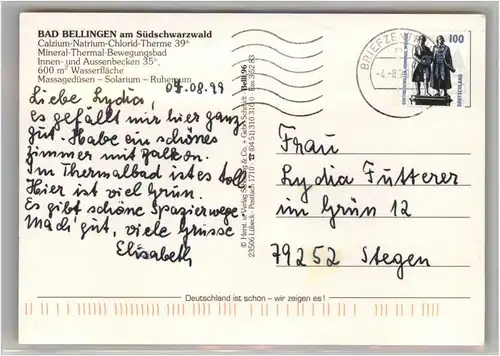 BAD BELLINGEN am Südschwarzwald
Calzium-Natrium-Chlorid-Therme 39°
Mineral-Thermal-Bewegungsbad
Innen- und Aussenbecken 35°.
600 m² Wasserfläche
Massagedüsen – Solarium – Ruheraum
04.08.99
Liebe Lydia,
Es gefällt mir hier ganz
gut. Habe ein schönes
Zimmer mit Balkon.
Im Thermalbad ist es toll
Hier ist viel Grün.
Es gibt schöne Spazierwege
Mach's gut, viele Grüsse
Elisabeth
Bell 96
23506 Lübeck · Postfach 1710
BRIEFZEN
-4.-8.
100
DEUTSCHLAND
Frau
Lydia Futterer
im Grün 12
79252 Stegen
Deutschland ist schön – wir zeigen es!